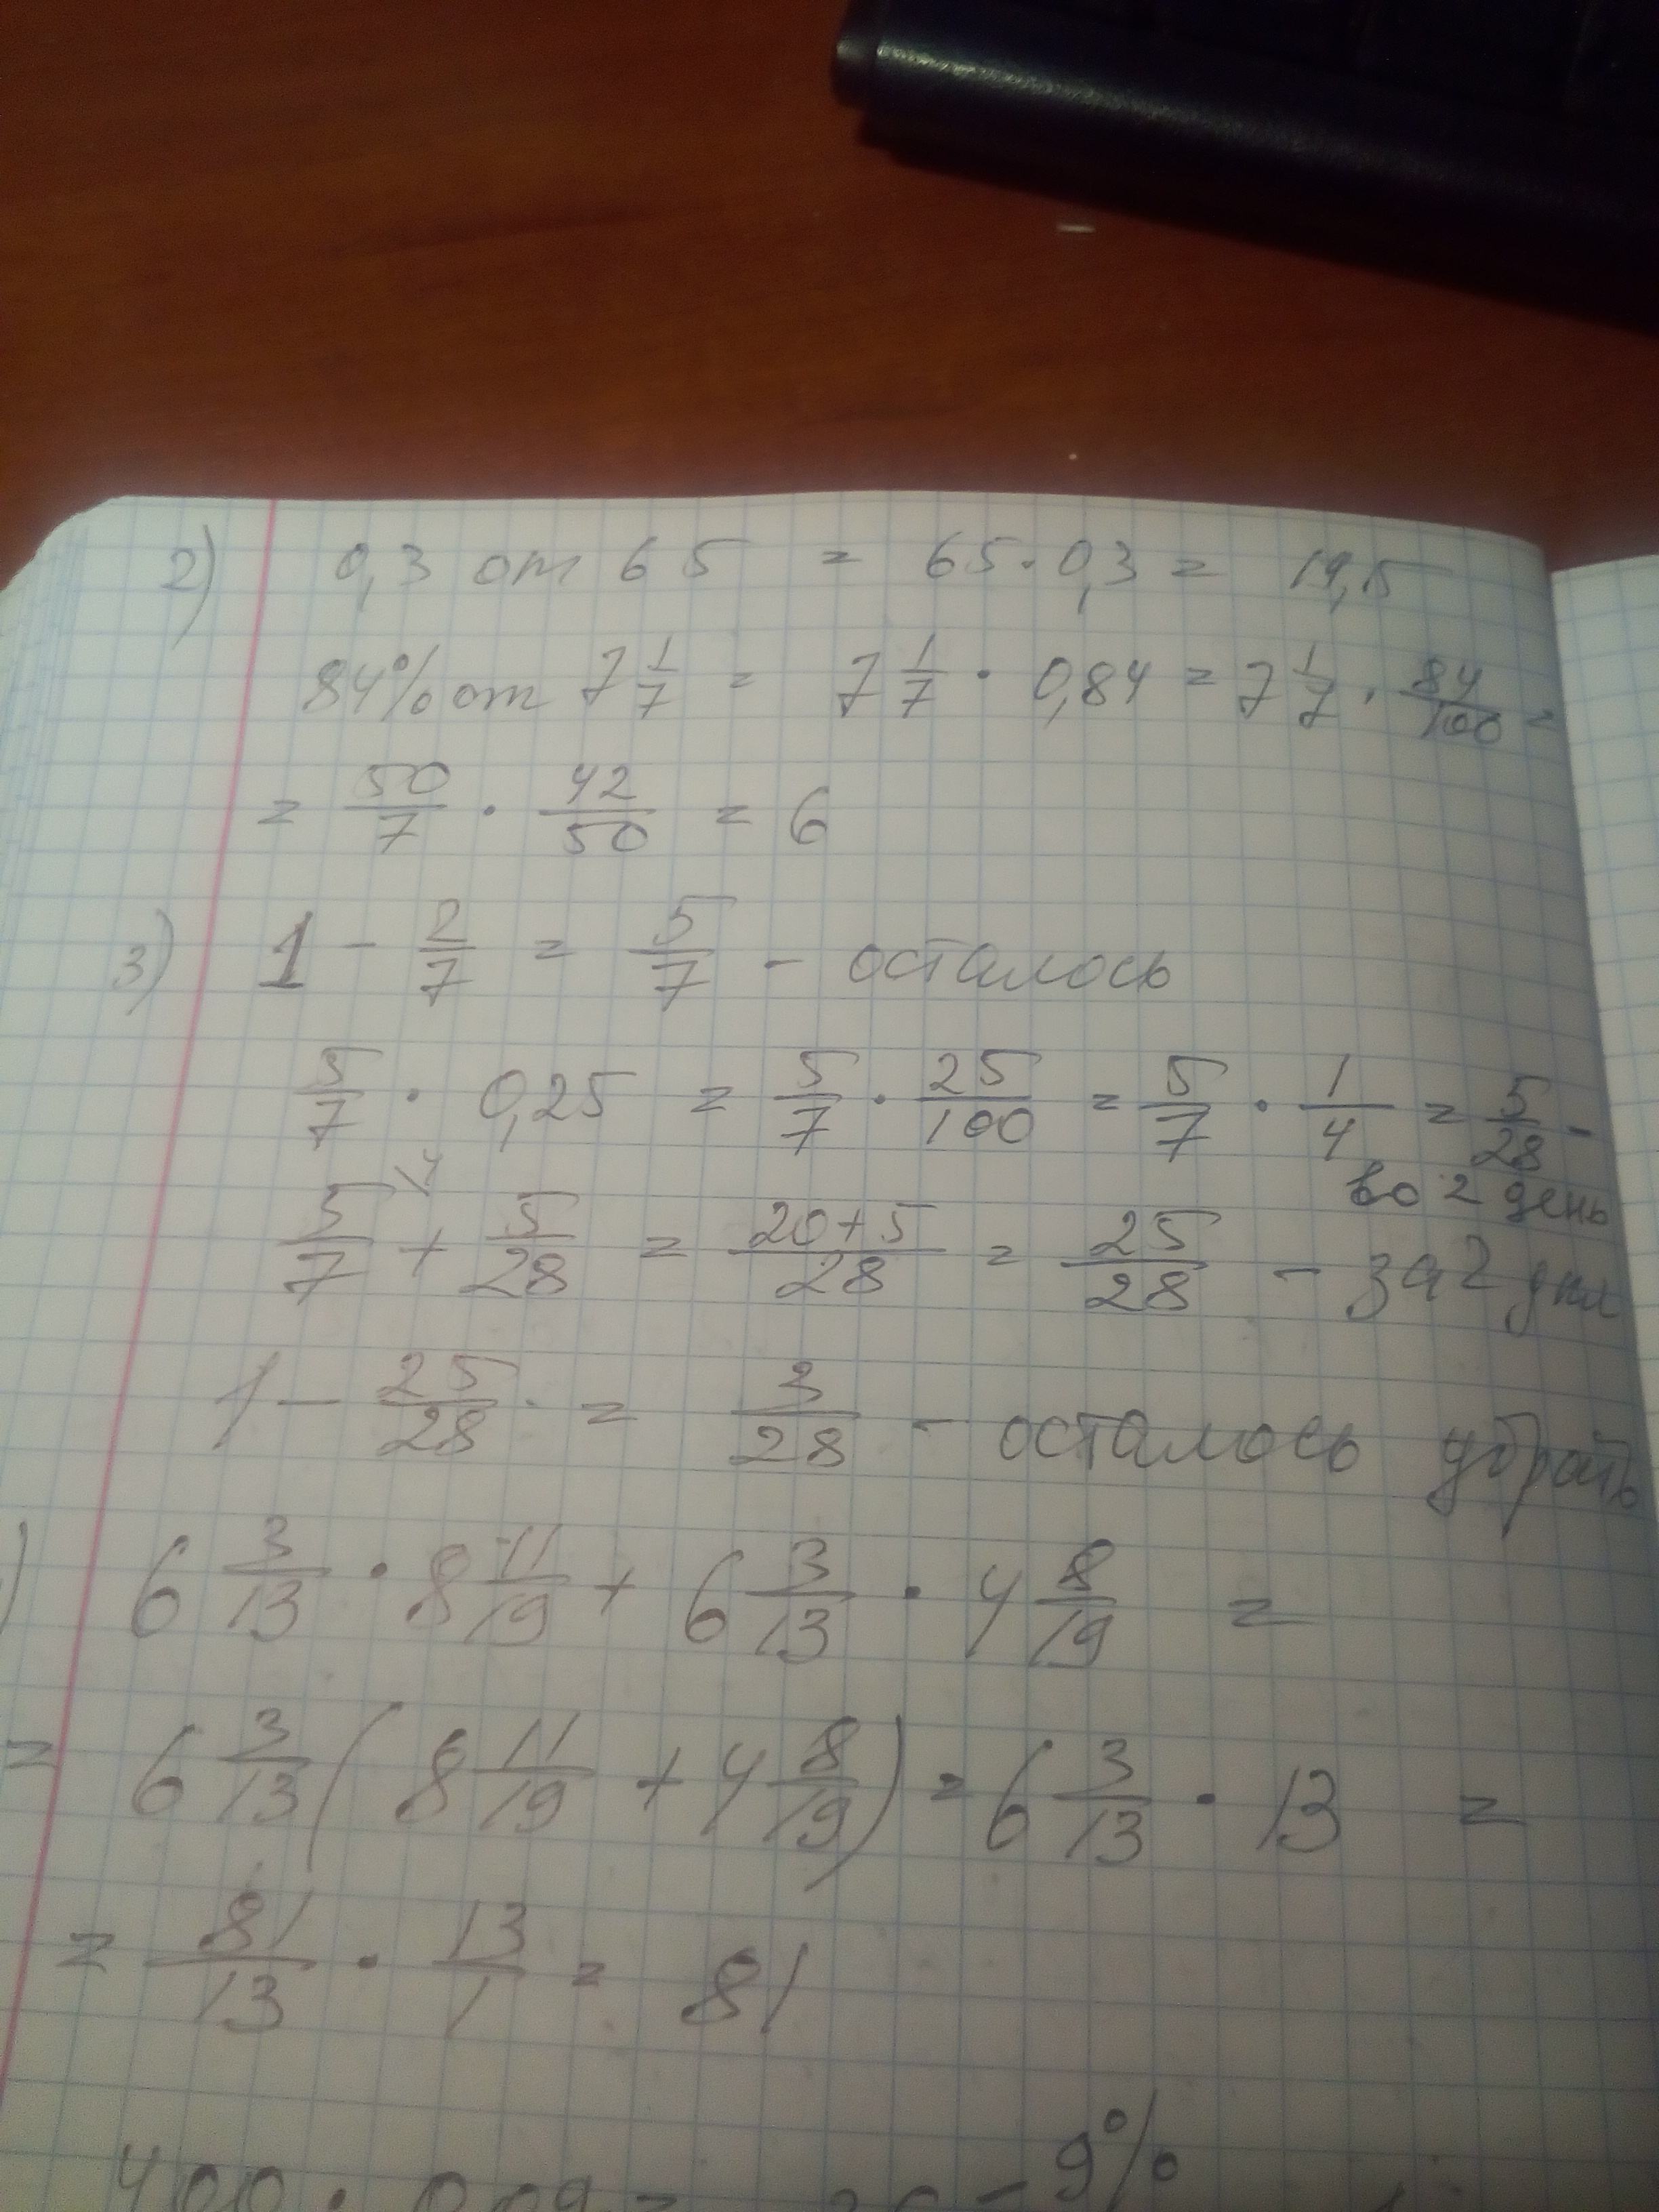 2) 0,3 от 65 = 65·0,3 = 19,5
84% от 7 1/7 = 7 1/7 · 0,84 = 7 1/7 · 84/100 =
= 50/7 · 42/50 = 6
3) 1 - 2/7 = 5/7 - осталось
5/7 · 0,25 = 5/7 · 25/100 = 5/7 · 1/4 = 5/28 -
во 2 день
5/7 + 5/28 = 20+5/28 = 25/28 - за 2 дня
1 - 25/28 · = 3/28 - осталось убрать
) 6 3/13 · 8 11/19 + 6 3/13 · 4 8/19 =
= 6 3/13 ( 8 11/19 + 4 8/19 ) = 6 3/13 · 13 =
= 81/13 · 13/1 = 81
400 · 0,09 = 36 - 9%